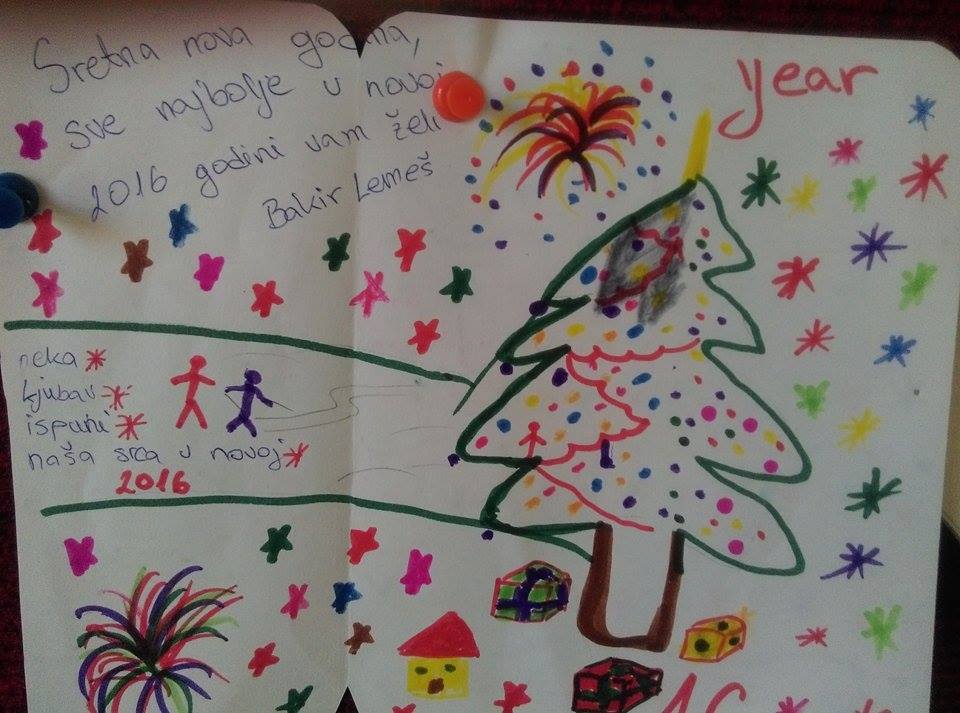 Sretna nova godina,
sve najbolje u novoj
2016 godini vam želi
Bakir Lemeš
year
neka
ljubav
ispuni
naša srca u novoj
2016